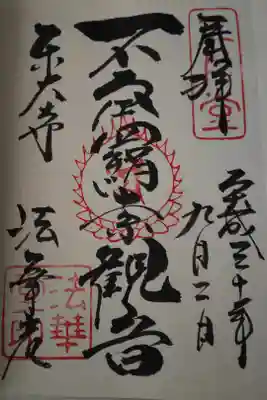 奉拝
平成三十年
九月二日
不空羂索観音
東大寺
法華堂
法華